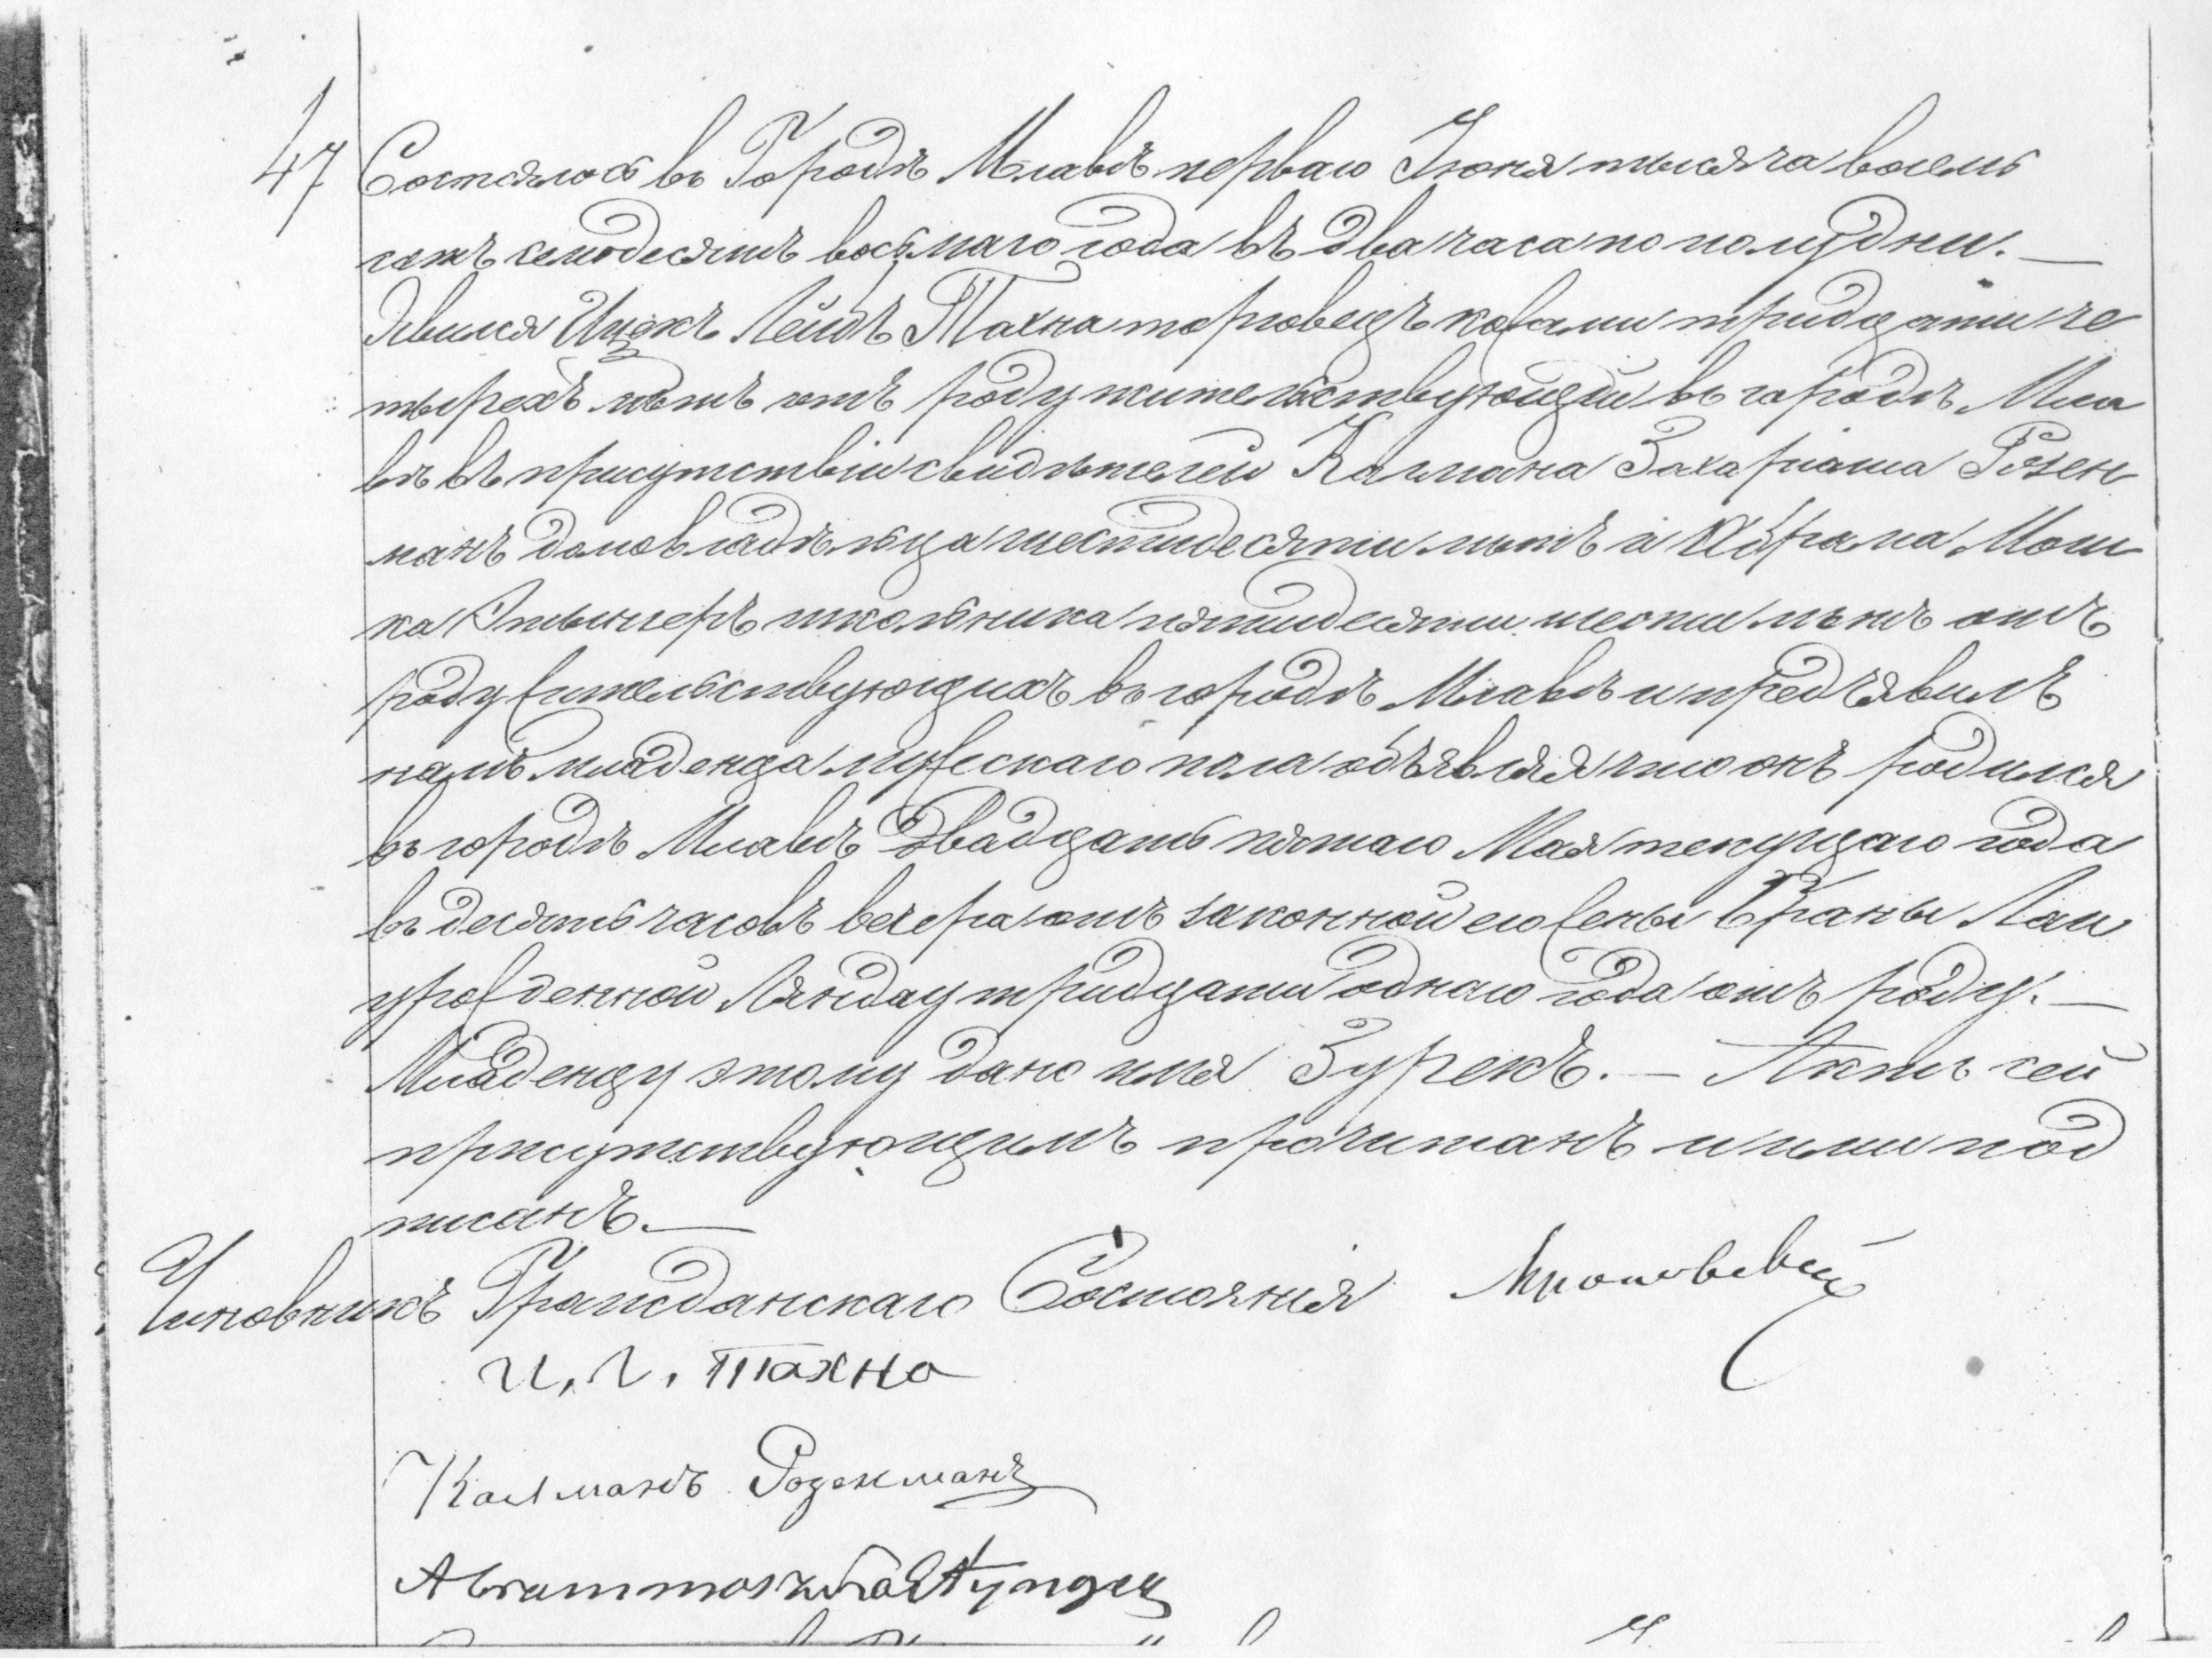 47 Состоялось въ Городѣ Млавѣ перваго Іюня тысяча восемь
сотъ семьдесятъ восьмаго года въ два часа по полудни. —
Явился Ицекъ Лейбъ Тахна торговецъ кожами тридцати че
тырехъ лѣтъ отъ роду жительствующій въ городѣ Мла
вѣ въ присутствіи свидѣтелей Калмана Захаріаша Розен
манъ домовладѣльца шестидесяти лѣтъ и Абрама Мош
ка школьника пятидесяти шести лѣтъ отъ
роду жительствующихъ въ городѣ Млавѣ и предъявилъ
намъ младенца мужескаго пола объявляя что онъ родился
въ городѣ Млавѣ двадцать пятаго Мая текущаго года
въ десять часовъ вечера отъ законной его жены Браны Лаи
урожденной Ляндау тридцати одного года отъ роду. —
Младенцу этому дано имя Зурекъ. — Актъ сей
присутствующимъ прочитанъ и ими под
писанъ. —
Чиновникъ Гражданскаго Состоянія
И. Л. Тахно
Калманъ Розенманъ